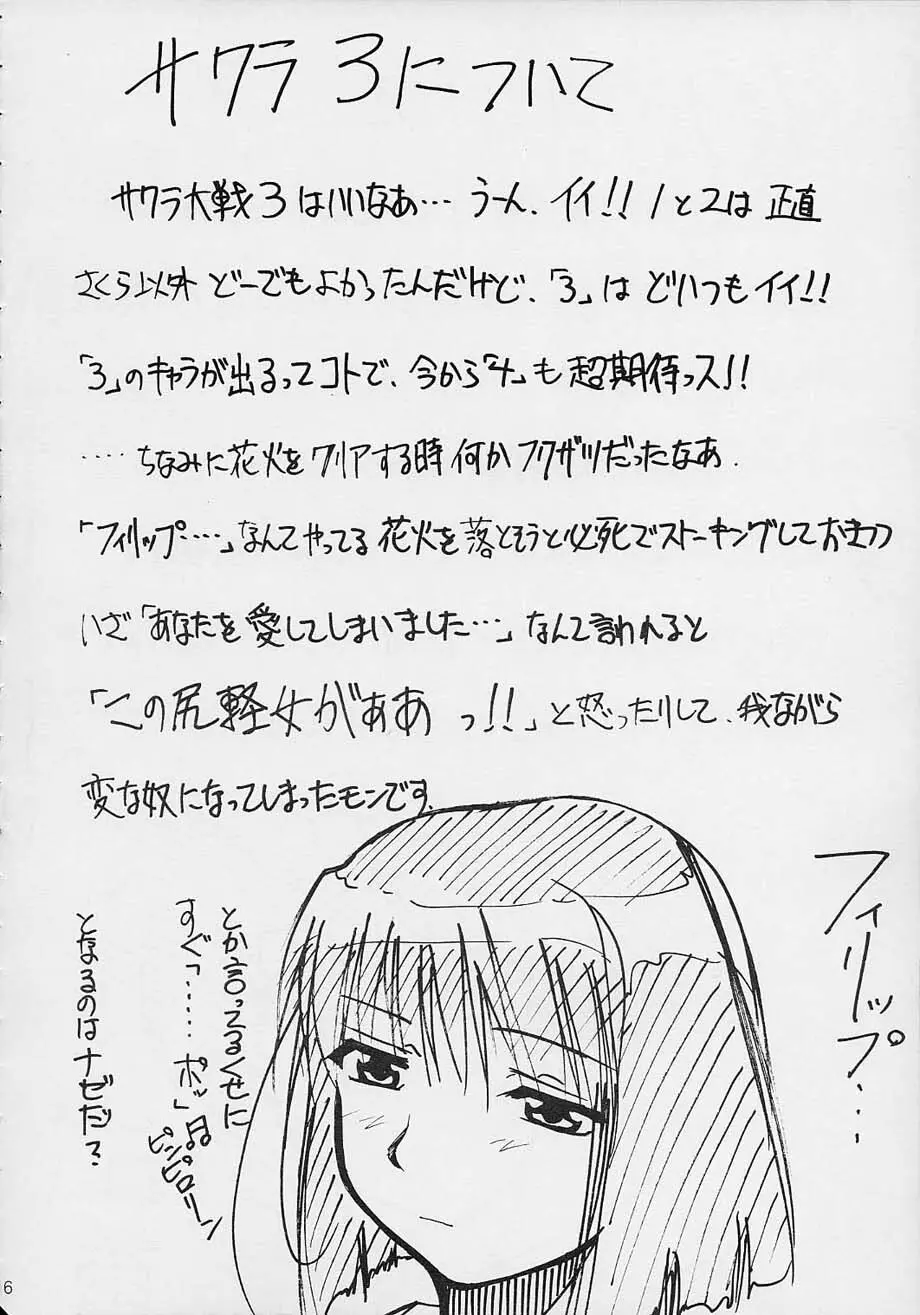 サクラ3について
サクラ大戦3はいいなあ…うーん、イイ!!1と2は正直
さくら以外どーでもよかったんだけど、「3」はどいつもイイ!!
「3」のキャラが出るってコトで、今から「4」も超期待っス!!
……ちなみに花火をクリアする時何かフクザツだったなあ.
「フィリップ……」なんてやってる花火を落とそうと必死でストーキングしておきつつ
いざ「あなたを愛してしまいました…」なんて言われると
「この尻軽女がぁあっ!!」と怒ったりして、我ながら
変な奴になってしまったモンです.
フィリップ…
とか言ってるくせに
すぐ「……ポッ」
ピンピロリーン
となるのはナゼだ?
6